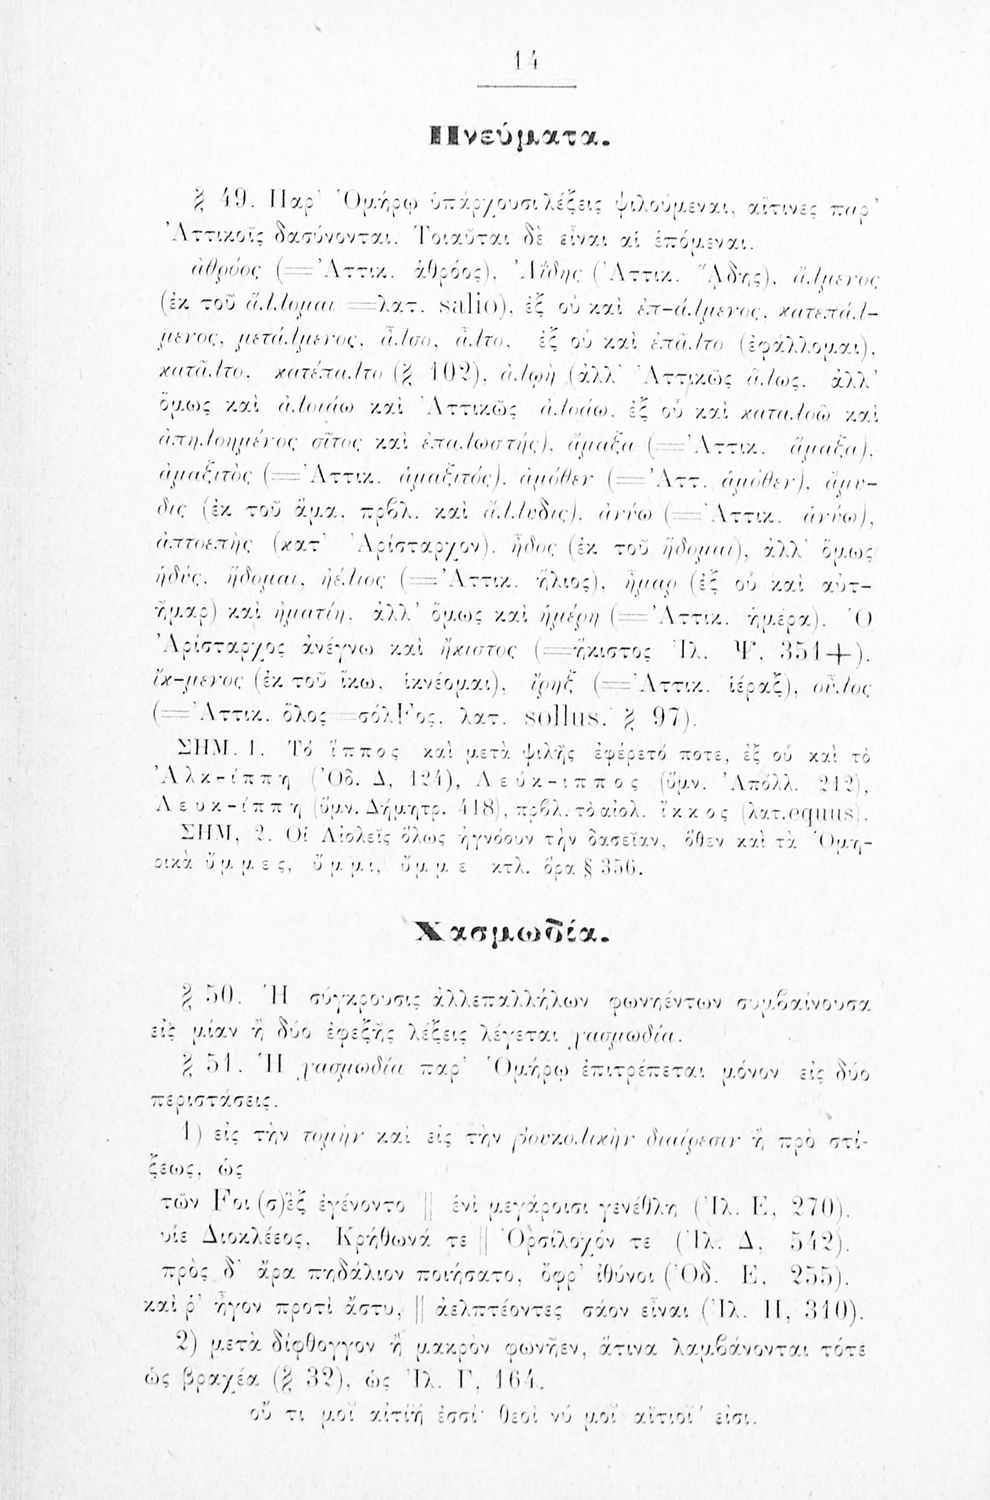 14
Πνεύματα.
§ 49. Παρ' Ὁμήρῳ ὑπάρχουσι λέξεις ψιλούμεναι, αἵτινες παρ'
Ἀττικοῖς δασύνονται. Τοιαῦται δὲ εἶναι αἱ ἑπόμεναι.
ἀθρόος (=Ἀττικ. ἁθρόος), Ἀΐδης (Ἀττικ. Ἅδης), ἄλμενος
(ἐκ τοῦ ἅλλομαι =λατ. salio), ἐξ οὗ καὶ ἐπ-άλμενος, κατεπάλ-
μενος, μετάλμενος, ἆλσο, ἆλτο, ἐξ οὗ καὶ ἐπᾶλτο (ἐφάλλομαι),
κατᾶλτο, κατέπαλτο (§ 102), ἀλωὴ (ἀλλ' Ἀττικῶς ἅλως, ἀλλ'
ὅμως καὶ ἀλοιάω καὶ Ἀττικῶς ἀλοάω, ἐξ οὗ καὶ καταλοῶ καὶ
ἀπηλοημένος σῖτος καὶ ἐπαλωστής), ἄμαξα (=Ἀττικ. ἅμαξα),
ἀμαξιτὸς (=Ἀττικ. ἁμαξιτός), ἀμόθεν (=Ἀττ. ἁμόθεν), ἄμυ-
δις (ἐκ τοῦ ἅμα, πρβλ. καὶ ἄλλυδις), ἀνύω (=Ἀττικ. ἁνύω),
ἀπτοεπὴς (κατ' Ἀρίσταρχον), ἦδος (ἐκ τοῦ ἥδομαι), ἀλλ' ὅμως
ἡδύς, ἥδομαι, ἠέλιος (=Ἀττικ. ἥλιος), ἦμαρ (ἐξ οὗ καὶ αὐτ-
ῆμαρ) καὶ ἠματίη, ἀλλ' ὅμως καὶ ἡμέρη (=Ἀττικ. ἡμέρα). Ὁ
Ἀρίσταρχος ἀνέγνω καὶ ἤκιστος (=ἥκιστος Ἰλ. Ψ, 351+).
ἴκ-μενος (ἐκ τοῦ ἵκω, ἱκνέομαι), ἴρηξ (=Ἀττικ. ἱέραξ), οὖλος
(=Ἀττικ. ὅλος =σόλFος, λατ. sollus. § 97).
ΣΗΜ. 1. Τό ἵππος καὶ μετὰ ψιλῆς ἐφέρετό ποτε, ἐξ οὗ καὶ τὸ
Ἀλκ-ίππη (Ὀδ. Δ, 124), Λεύκ-ιππος (ὕμν. Ἀπόλλ. 212),
Λευκ-ίππη (ὕμν. Δήμητρ. 418), πρβλ. τὸ αἰολ. ἴκκος (λατ. equus).
ΣΗΜ. 2. Οἱ Αἰολεῖς ὅλως ἠγνόουν τὴν δασεῖαν, ὅθεν καὶ τὰ Ὁμη-
ρικὰ ὔμμες, ὔμμι, ὔμμε κτλ. ὅρα § 356.
Χασμωδία.
§ 50. Ἡ σύγκρουσις ἀλλεπαλλήλων φωνηέντων συμβαίνουσα
εἰς μίαν ἢ δύο ἐφεξῆς λέξεις λέγεται χασμωδία.
§ 51. Ἡ χασμωδία παρ' Ὁμήρῳ ἐπιτρέπεται μόνον εἰς δύο
περιστάσεις.
1) εἰς τὴν τομὴν καὶ εἰς τὴν βουκολικὴν διαίρεσιν ἢ πρὸ στί-
ξεως, ὡς
τῶν Fοι (σ)ἓξ ἐγένοντο || ἐνὶ μεγάροισι γενέθλη (Ἰλ. Ε, 270).
υἷε Διοκλέεος, Κρήθωνά τε || Ὀρσίλοχόν τε (Ἰλ. Δ, 542).
πρὸς δ' ἄρα πηδάλιον ποιήσατο, ὄφρ' ἰθύνοι (Ὀδ. Ε, 255).
καί ῥ' ἦγον προτὶ ἄστυ, || ἀελπτέοντες σάον εἶναι (Ἰλ. Η, 310).
2) μετὰ δίφθογγον ἢ μακρὸν φωνῆεν, ἅτινα λαμβάνονται τότε
ὡς βραχέα (§ 32), ὡς Ἰλ. Γ, 164.
οὔ τι μοῖ αἰτίή ἐσσί· θεοὶ νύ μοῖ αἴτιοί εἰσι.